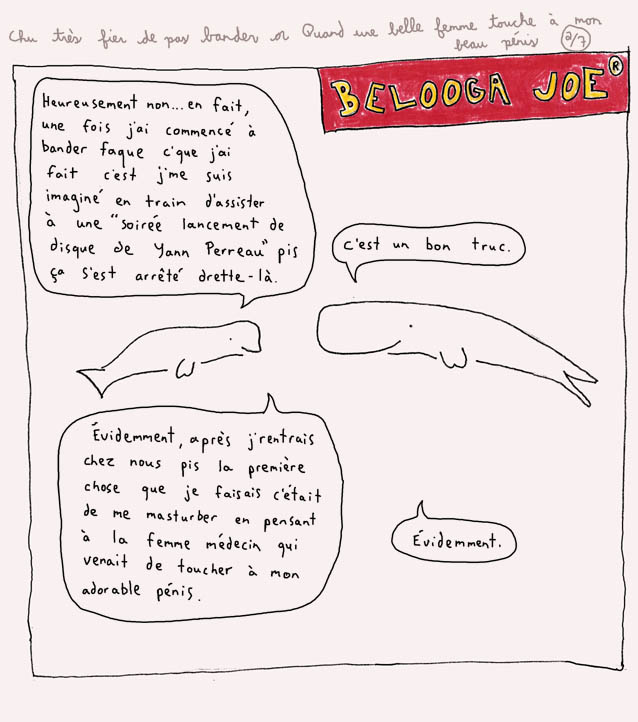 Chu très fier de pas bander or Quand une belle femme touche à mon
beau pénis 2/7
BELOOGA JOE®
Heureusement non... en fait,
une fois j'ai commencé à
bander faque c'que j'ai
fait c'est j'me suis
imaginé en train d'assister
à une "soirée lancement de
disque de Yann Perreau" pis
ça s'est arrêté drette-là.
c'est un bon truc.
Évidemment, après j'rentrais
chez nous pis la première
chose que je faisais c'était
de me masturber en pensant
à la femme médecin qui
venait de toucher à mon
adorable pénis.
Évidemment.